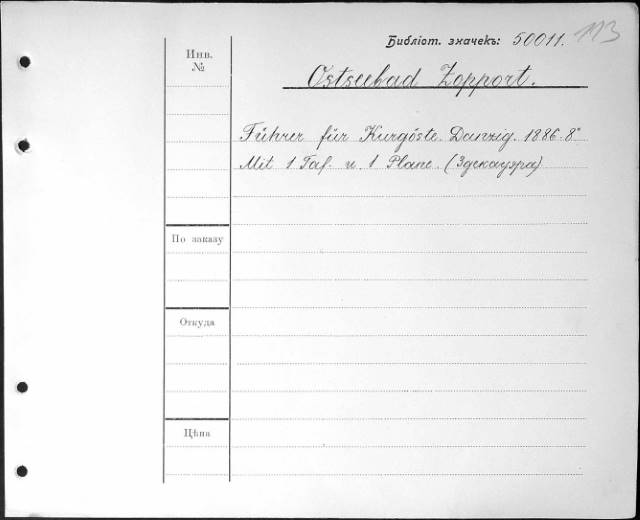 Библіот. значекъ: 50011. 113
Инв. №
Ostseebad Zopport.
Führer für Kurgöste. Danzig. 1886. 8°
Mit 1 Taf. u. 1 Plane. (Здекауэра)
По заказу
Откуда
Цѣна